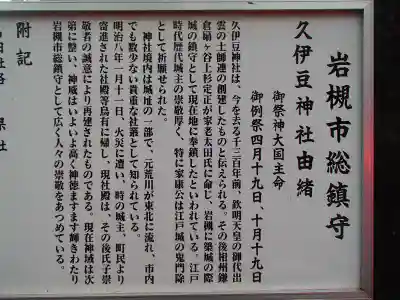 岩槻市総鎮守
久伊豆神社由緒
御祭神大国主命
御例祭四月十九日、十月十九日
久伊豆神社は、今を去る千三百年前、欽明天皇の御代出
雲の土師連の創建したものと伝えられる。その後相州鎌
倉扇ヶ谷上杉定正が家老太田氏に命じ、岩槻に築城の際
城の鎮守として現在地に奉鎮したといわれている。江戸
時代歴代城主の崇敬厚く、特に家康公は江戸城の鬼門除
として祈願せられた。
神社境内は城址の一部で、元荒川が東北に流れ、市内
でも数少ない貴重な社叢として知られている。
明治八年一月十一日、火災に遭い、時の城主、町民より
寄進された社殿等烏有に帰し、現社殿は、その後氏子崇
敬者の誠意により再建されたものである。現在神域は次
第に整い、神威はいよいよ高く神徳ますます輝きわたり
岩槻市総鎮守として広く人々の崇敬をあつめている。
附記